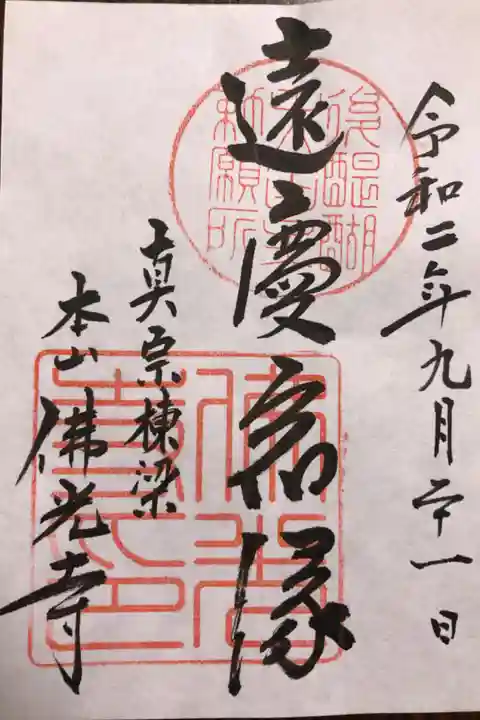 令和二年九月二十一日
遠慶宿縁
真宗棟梁
本山佛光寺
後醍醐
勅願所
佛光
寺印